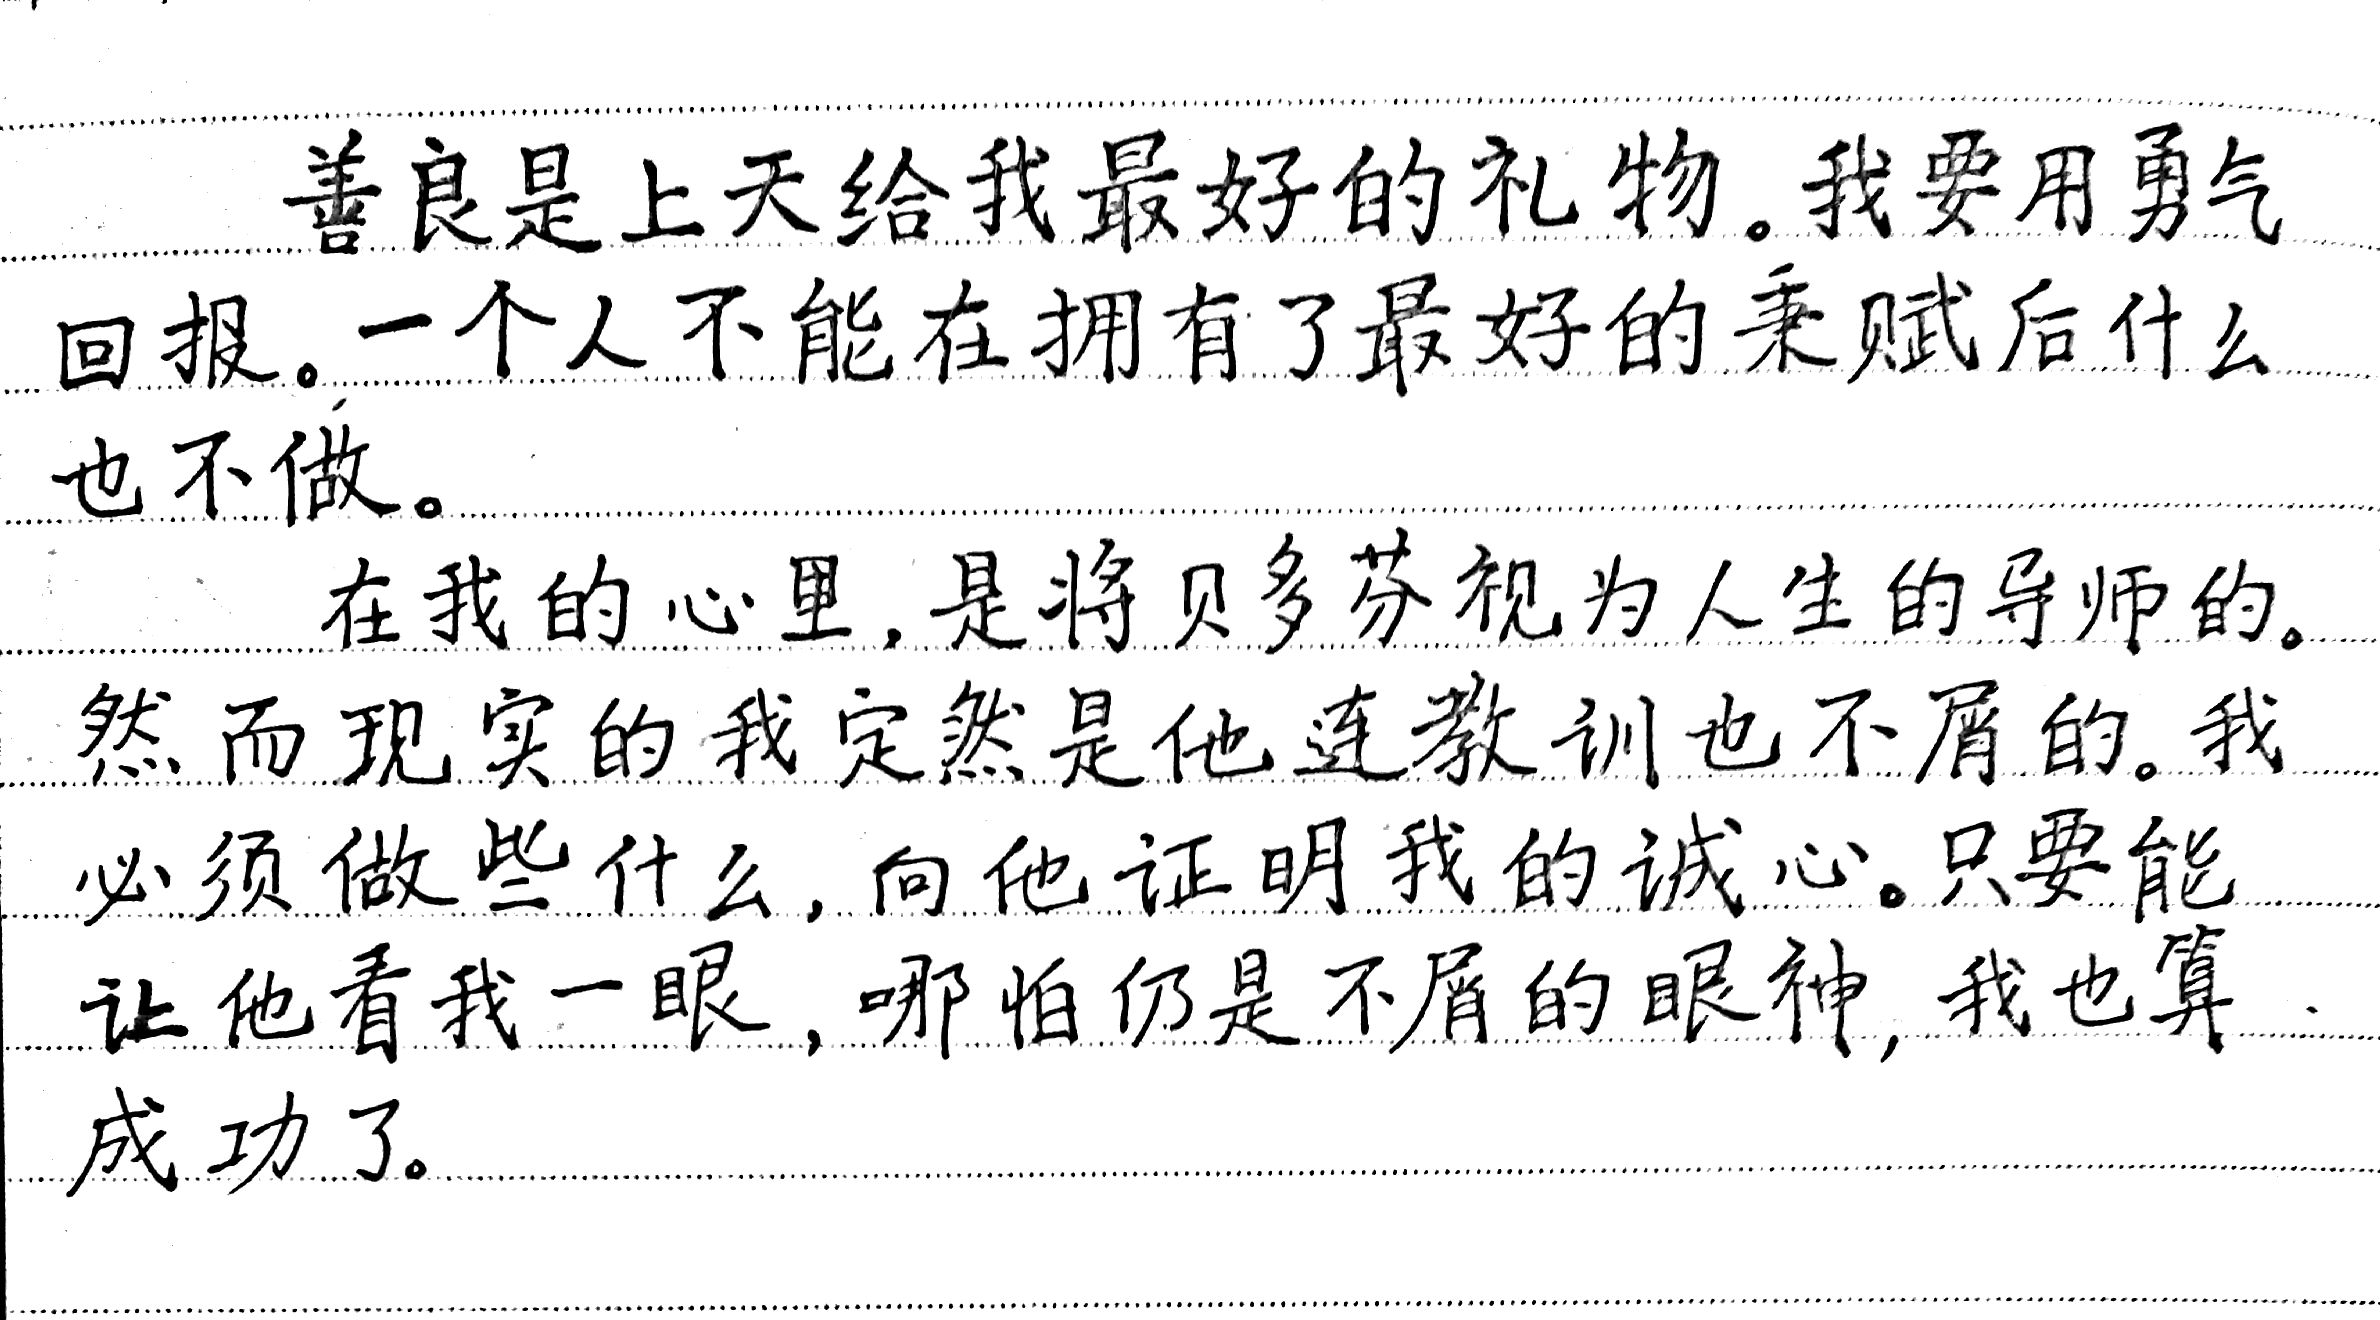 善良是上天给我最好的礼物。我要用勇气
回报。一个人不能在拥有了最好的秉赋后什么
也不做。
在我的心里，是将贝多芬视为人生的导师的。
然而现实的我定然是他连教训也不屑的。我
必须做些什么，向他证明我的诚心。只要能
让他看我一眼，哪怕仍是不屑的眼神，我也算
成功了。